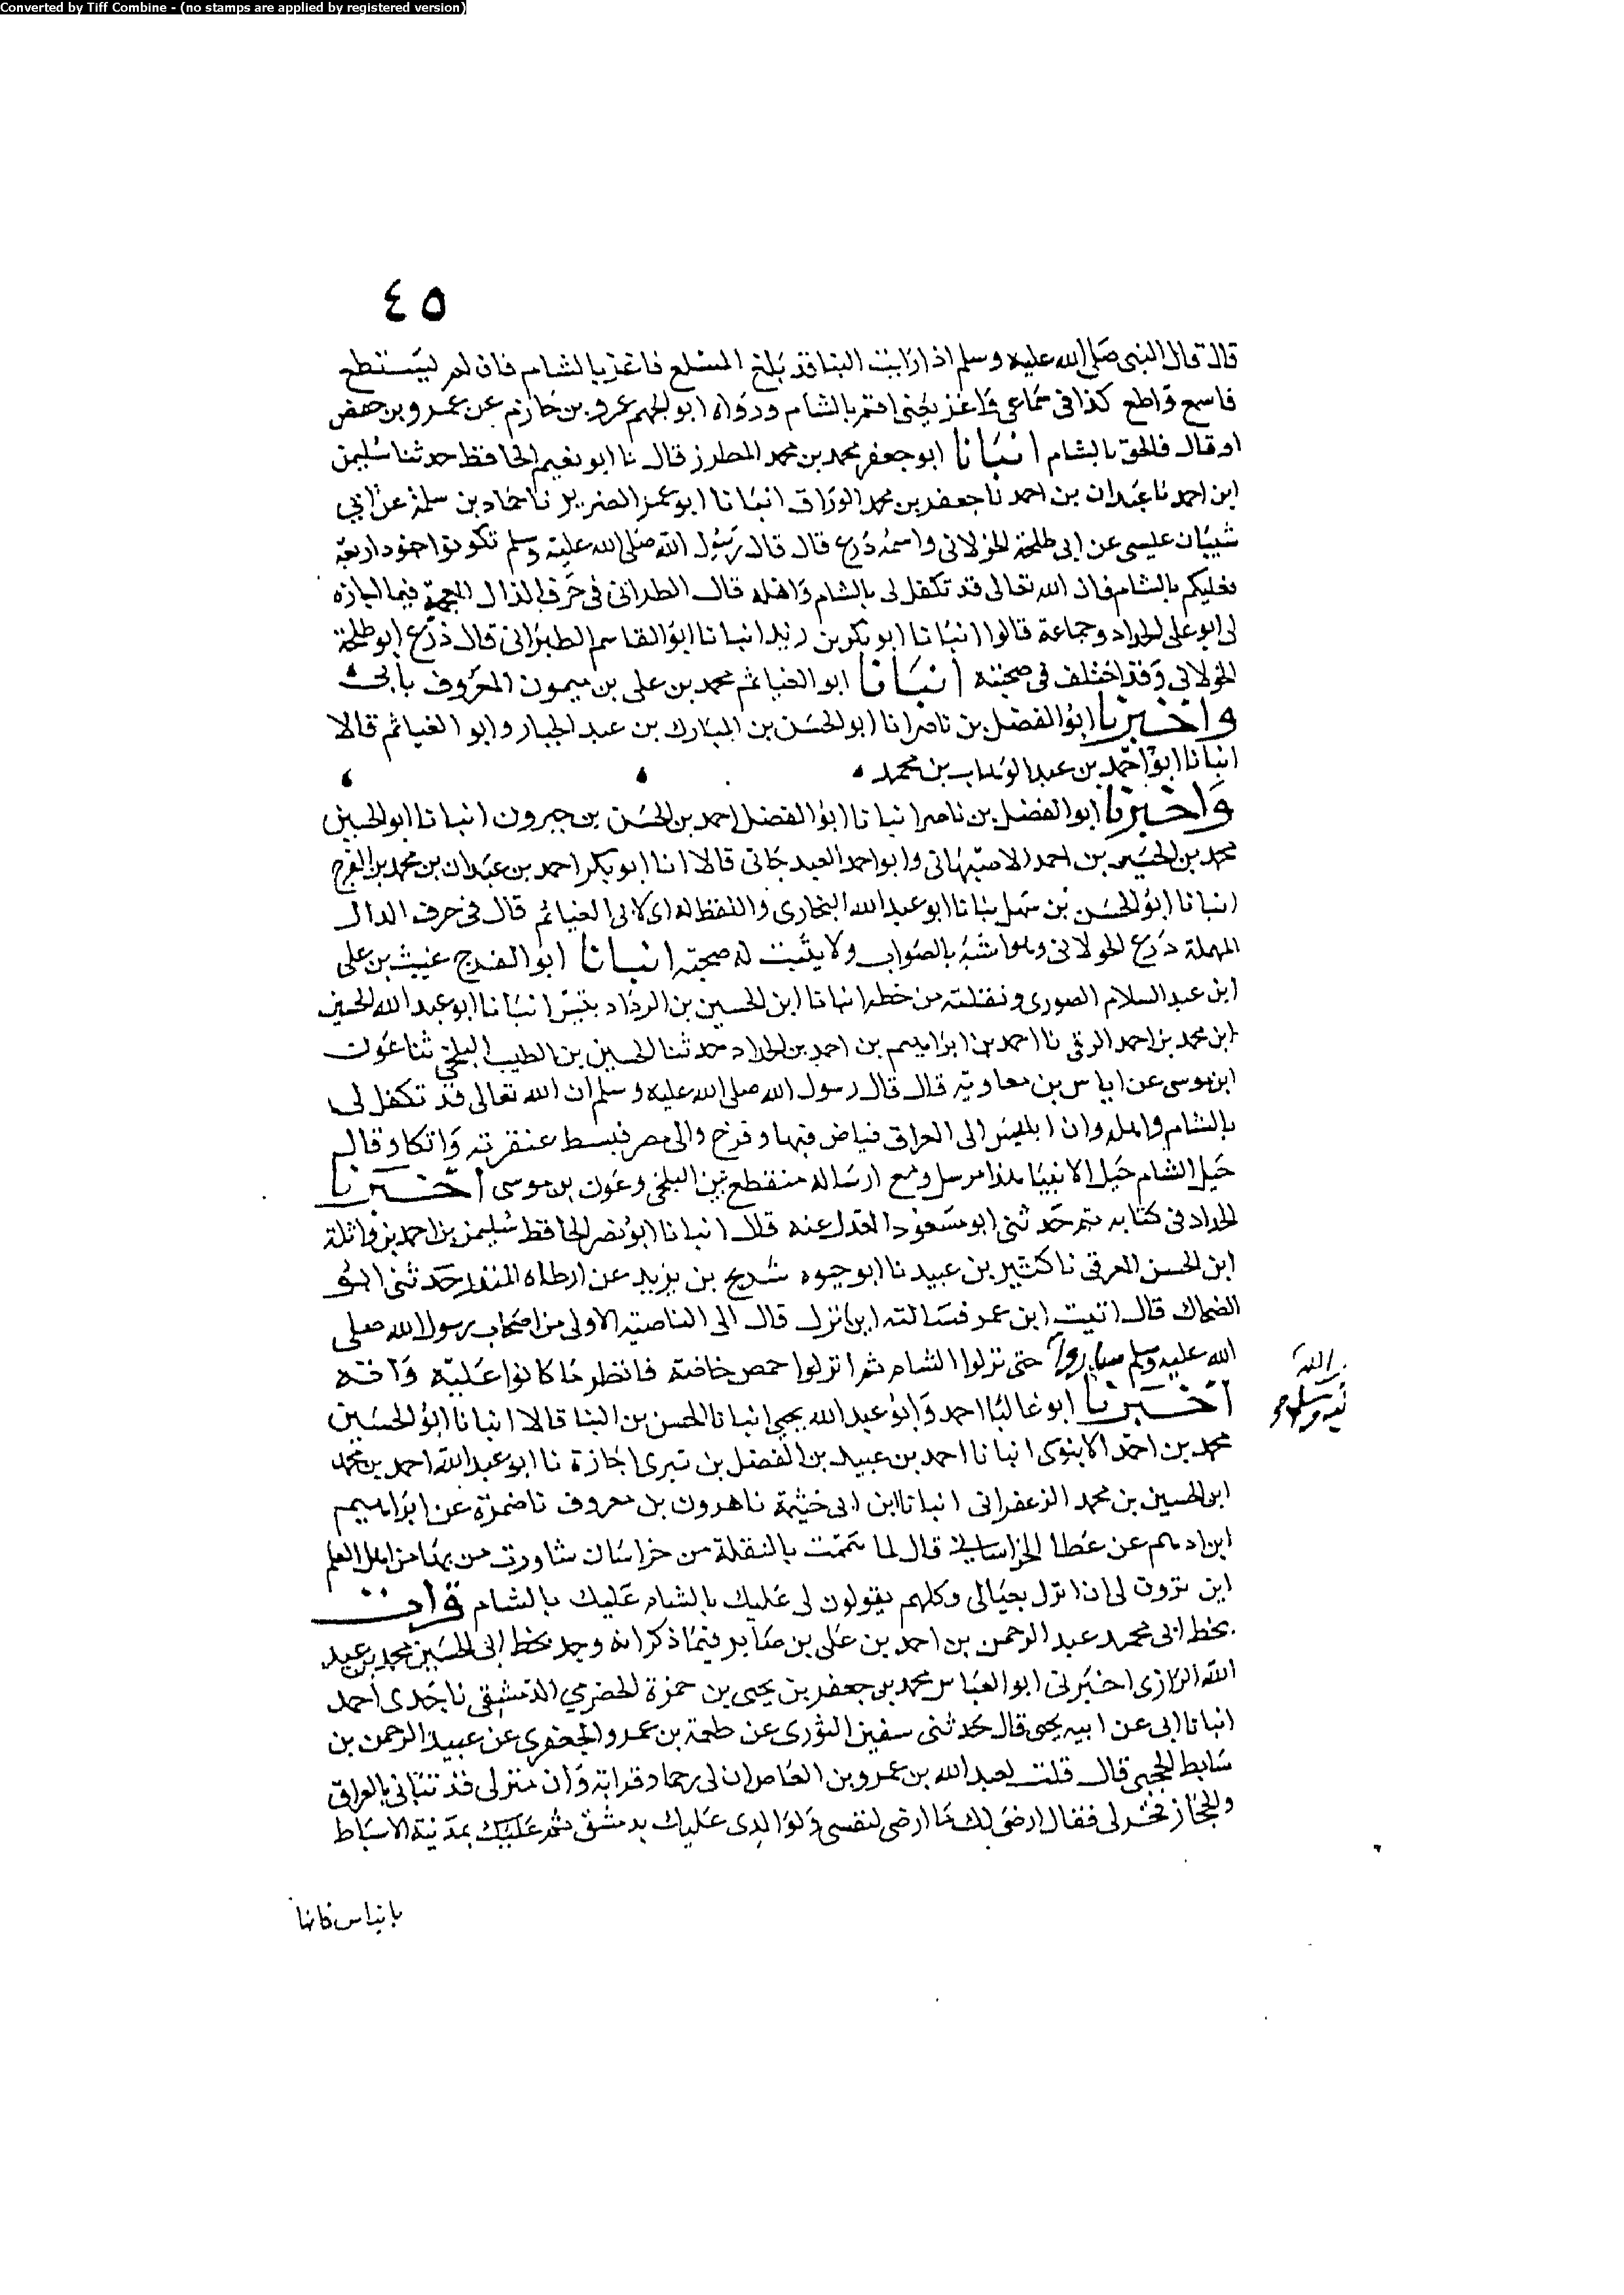 Converted by Tiff Combine - (no stamps are applied by registered version)
٤٥
قال قال النبى صلى الله عليه وسلم اذا رايت البنا قد بلغ المسلع فاغز بالشام فان لم ليستطع
فاسمع واطع كذا فى سماعى فاغز يعنى اقم بالشام ورواه ابو الجهم عمرو بن حازم عن عمرو بن حفص
او قال فالحق بالشام انبانا ابو جعفر محمد بن محمد المطرز قال نا ابو نعيم الحافظ حدثنا سليمن
ابن احمد نا عبدان بن احمد نا جعفر بن محمد الوراق انبانا ابو عمر الضرير نا حماد بن سلمة عن ابى
شيبان عيسى عن ابى طلحة الخولانى واسمه درع قال قال رسول الله صلى الله عليه وسلم تكونوا جنودا اربعة
فعليكم بالشام فان الله تعالى قد تكفل لى بالشام واهله قال الطبرانى فى حرف الذال المعجمة فيما اجازه
لى ابو على الحداد وجماعة قالوا انبانا ابو بكر بن ريذ انبانا ابو القاسم الطبرانى قال ذرع ابو طلحة
الخولانى وقد اختلف فى صحبته انبانا ابو الغنايم محمد بن على بن ميمون المعروف بابى
واخبرنا ابو الفضل بن ناصر انا ابو الحسن بن المبارك بن عبد الجبار وابو الغنايم قالا
انبانا ابو احمد بن عبد الوهاب بن محمد
واخبرنا ابو الفضل بن ناصر انبانا ابو الفضل احمد بن الحسن بن خيرون انبانا ابو الحسين
محمد بن الحسين بن احمد الاصبهانى وابو احمد العبدجانى قالا انا ابو بكر احمد بن عبدان بن محمد بن الفرج
انبانا ابو الحسن بن سهل نبانا ابو عبد الله البخارى واللفظ له اى لابى الغنايم قال فى حرف الدال
المهملة درع الخولانى وهو اشبه بالصواب ولا يثبت له صحبته انبانا ابو الفرج غيث بن على
ابن عبد السلام الصورى ونقلته من خطه انبانا ابن الحسين بن الرداد بتنيس انبانا ابو عبد الله الحسين
ابن محمد بن احمد الرقى نا احمد بن ابراهيم بن احمد بن الحداد حدثنا الحسين بن الطيب البلخى ثنا عون
ابن موسى عن اياس بن معاوية قال قال رسول الله صلى الله عليه وسلم ان الله تعالى قد تكفل لى
بالشام واهله وان ابليس اتى العراق فباض فيها وفرخ والى مصر فبسط عنقريه واتكا وقال
جبل الشام جبل الانبيا هذا مرسل ومع ارساله منقطع بين البلخى وعون بن موسى اخبرنا
الحداد فى كتابه ثم حدثنى ابو مسعود المعدل عنه قال انبانا ابو نصر الحافظ سليمن بن احمد بن واثلة
ابن الحسن العرقى نا كثير بن عبيد نا ابو حيوه شريح بن يزيد عن ارطاه المنذر حدثنى ابو
الضحاك قال اتيت ابن عمر فسالته اين انزل قال الى الناصية الاولى من اصحاب رسول الله صلى
الله عليه وسلم ساروا حتى نزلوا الشام ثم انزلوا حمص خاصة فانظر ما كانوا عليه واته
اخبرنا ابو غالبا احمد وابو عبد الله يحيى انبانا الحسن بن البنا قالا انبانا ابو الحسين
محمد بن احمد الابنوى انبانا احمد بن عبيد بن الفضل بن بيرى اجازة نا ابو عبد الله احمد بن محمد
ابن الحسين بن محمد الزعفرانى انبانا ابن ابى خيثمة نا هرون بن معروف نا ضمرة عن ابراهيم
ابن ادهم عن عطا الخراسانى قال لما هممت بالنقلة من خراسان شاورت من بها من اهل العلم
اين ترون لى ان انزل بعيالى وكلهم يقولون لى عليك بالشام عليك بالشام قرات
بخط ابى محمد عبد الرحمن بن احمد بن على بن صابر فيما ذكر انه وجد بخط ابى الحسين محمد بن عبيد
الله الرازى اخبرنى ابو العباس محمد بن جعفر بن يحيى بن حمزة الحضرمى الدمشقى نا جدى احمد
انبانا ابى عن ابيه يحيى قال حدثنى سفين الثورى عن طعمة بن عمرو الجعفرى عن عبيد الرحمن بن
سابط الجمحى قال قلت لعبد الله بن عمرو بن العاص ان لى رحما وقرابة وان منزلى قد نبانى بالعراق
والحجاز فخر لى فقال ارضى لك ما ارضى لنفسى ولولدى عليك بدمشق ثم عليك بمدينة الاسباط
بانياس فانها